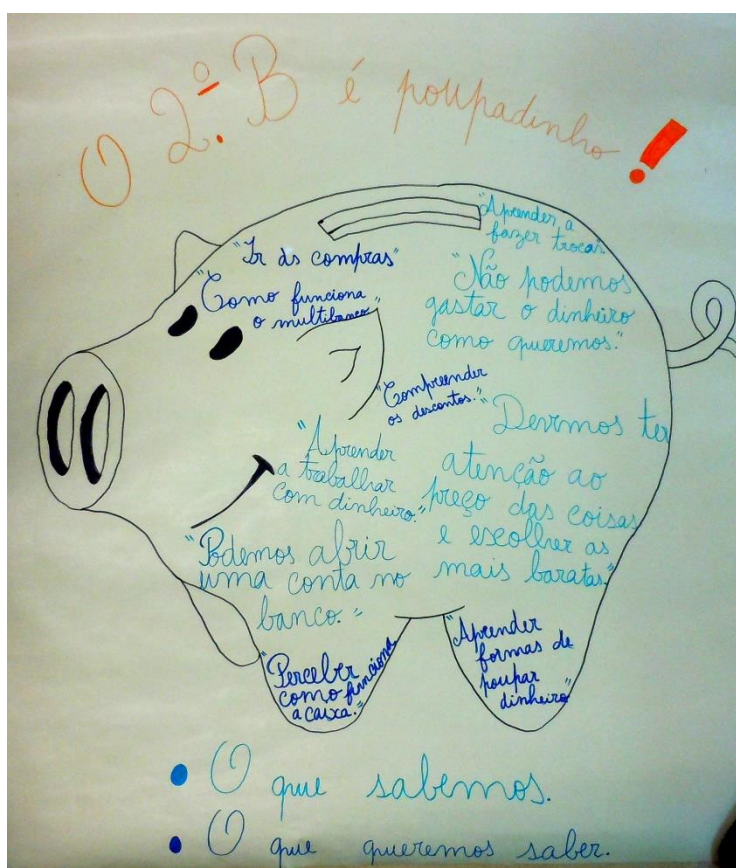 O 2.º B é poupadinho!
"Aprender a
fazer trocas."
"Ir às compras"
"Como funciona
o multibanco"
"Não podemos
gastar o dinheiro
como queremos."
"Compreender
os descontos."
"Devemos ter
atenção ao
preço das coisas
e escolher as
mais baratas."
"Aprender
a trabalhar
com dinheiro."
"Podemos abrir
uma conta no
banco."
"Perceber
como funciona
a caixa."
"Aprender
formas de
poupar
dinheiro"
• O que sabemos.
• O que queremos saber.